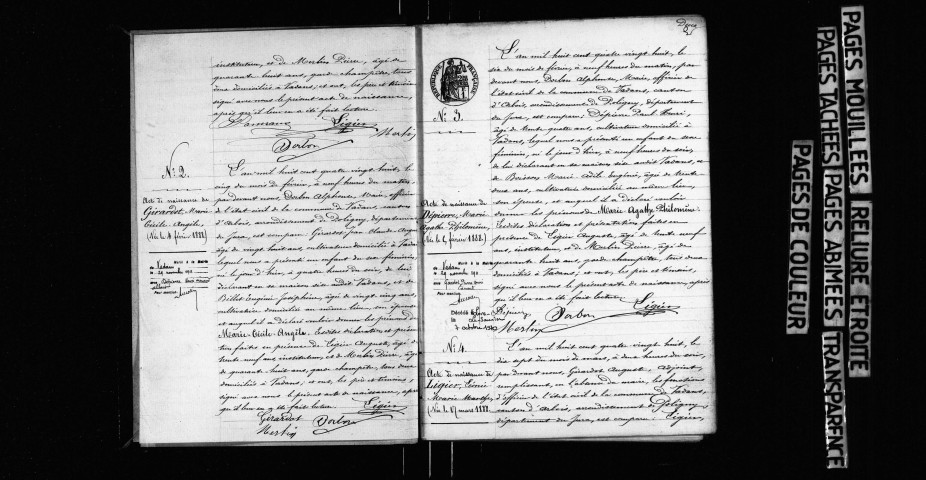 instituteur, et de Merlin Pierre, âgé de
quarante huit ans, garde champêtre, tous
deux domiciliés à Vadans; et ont, les père et témoins
signé avec nous le présent acte de naissance,
après qu'il leur en a été fait lecture.
Ligier
Merlin
Dorbon
N° 2.
Acte de naissance de
Girardot, Marie
Cécile Angèle.
(Née le 4 février 1888)
L'an mil huit cent quatre vingt huit, le
cinq du mois de février, à neuf heures du matin,
par devant nous, Dorbon Alphonse Marie, officier
de l'état civil de la commune de Vadans, canton
d'Arbois, arrondissement de Poligny, département
du Jura, est comparu Girardot, Jean Claude Auguste
âgé de vingt huit ans, cultivateur domicilié à Vadans
lequel nous a présenté un enfant du sexe féminin,
né le jour d'hier, à quatre heures du soir, de lui
déclarant en sa maison sise audit Vadans, et de
Billet Eugénie Joséphine, âgée de vingt cinq ans,
cultivatrice domiciliée au même lieu, son épouse
et auquel il a déclaré vouloir donner les prénoms de
Marie-Cécile-Angèle. Lesdites déclaration et présenta-
tion faites en présence de Ligier Auguste, âgé de
trente neuf ans, instituteur, et de Merlin Pierre, âgé
de quarante huit ans, garde champêtre, tous deux
domiciliés à Vadans; et ont, les père et témoins,
signé avec nous le présent acte de naissance, après
qu'il leur en a été fait lecture.
Ligier
Girardot
Dorbon
Merlin
Vadans
29 novembre 1911
N° 3.
Acte de naissance de
Dépierre, Marie
Agathe Philomène,
(Née le 5 février 1888.)
L'an mil huit cent quatre vingt huit, le
six du mois de février, à neuf heures du matin, par
devant nous, Dorbon Alphonse, Marie, officier de
l'état civil de la commune de Vadans, canton
d'Arbois, arrondissement de Poligny, département
du Jura, est comparu: Dépierre Paul Henri,
âgé de trente quatre ans, cultivateur domicilié à
Vadans, lequel nous a présenté un enfant du sexe
féminin, né le jour d'hier, à neuf heures du soir,
de lui déclarant en sa maison sise audit Vadans, et
de Buisson Marie Adèle Eugénie, âgée de trente
deux ans, cultivatrice domiciliée au même lieu,
son épouse, et auquel il a déclaré vouloir
donner les prénoms de Marie Agathe Philomène.
Lesdites déclaration et présentation faites en
présence de Ligier Auguste, âgé de trente neuf
ans, instituteur, et de Merlin Pierre, âgé de
quarante huit ans, garde champêtre, tous deux
domiciliés à Vadans; et ont, les père et témoins,
signé avec nous le présent acte de naissance, après
qu'il leur en a été fait lecture.
Ligier
Dépierre
Dorbon
Merlin
Vadans
29 novembre 1911
Décédée
7 octobre
N° 4.
Acte de naissance de
Ligier,
Marie Marthe,
(Née le 17 mars 1888.
L'an mil huit cent quatre vingt huit, le
dix sept du mois de mars, à deux heures du soir,
par devant nous, Girardot August, adjoint,
remplissant, en l'absence du maire, les fonctions
d'officier de l'état civil de la commune de Vadans,
canton d'Arbois, arrondissement de Poligny,
département du Jura, est comparu: Ligier,
PAGES MOUILLEES RELIURE ETROITE
PAGES TACHEES PAGES ABIMEES TRANSPARENCE
PAGES DE COULEUR